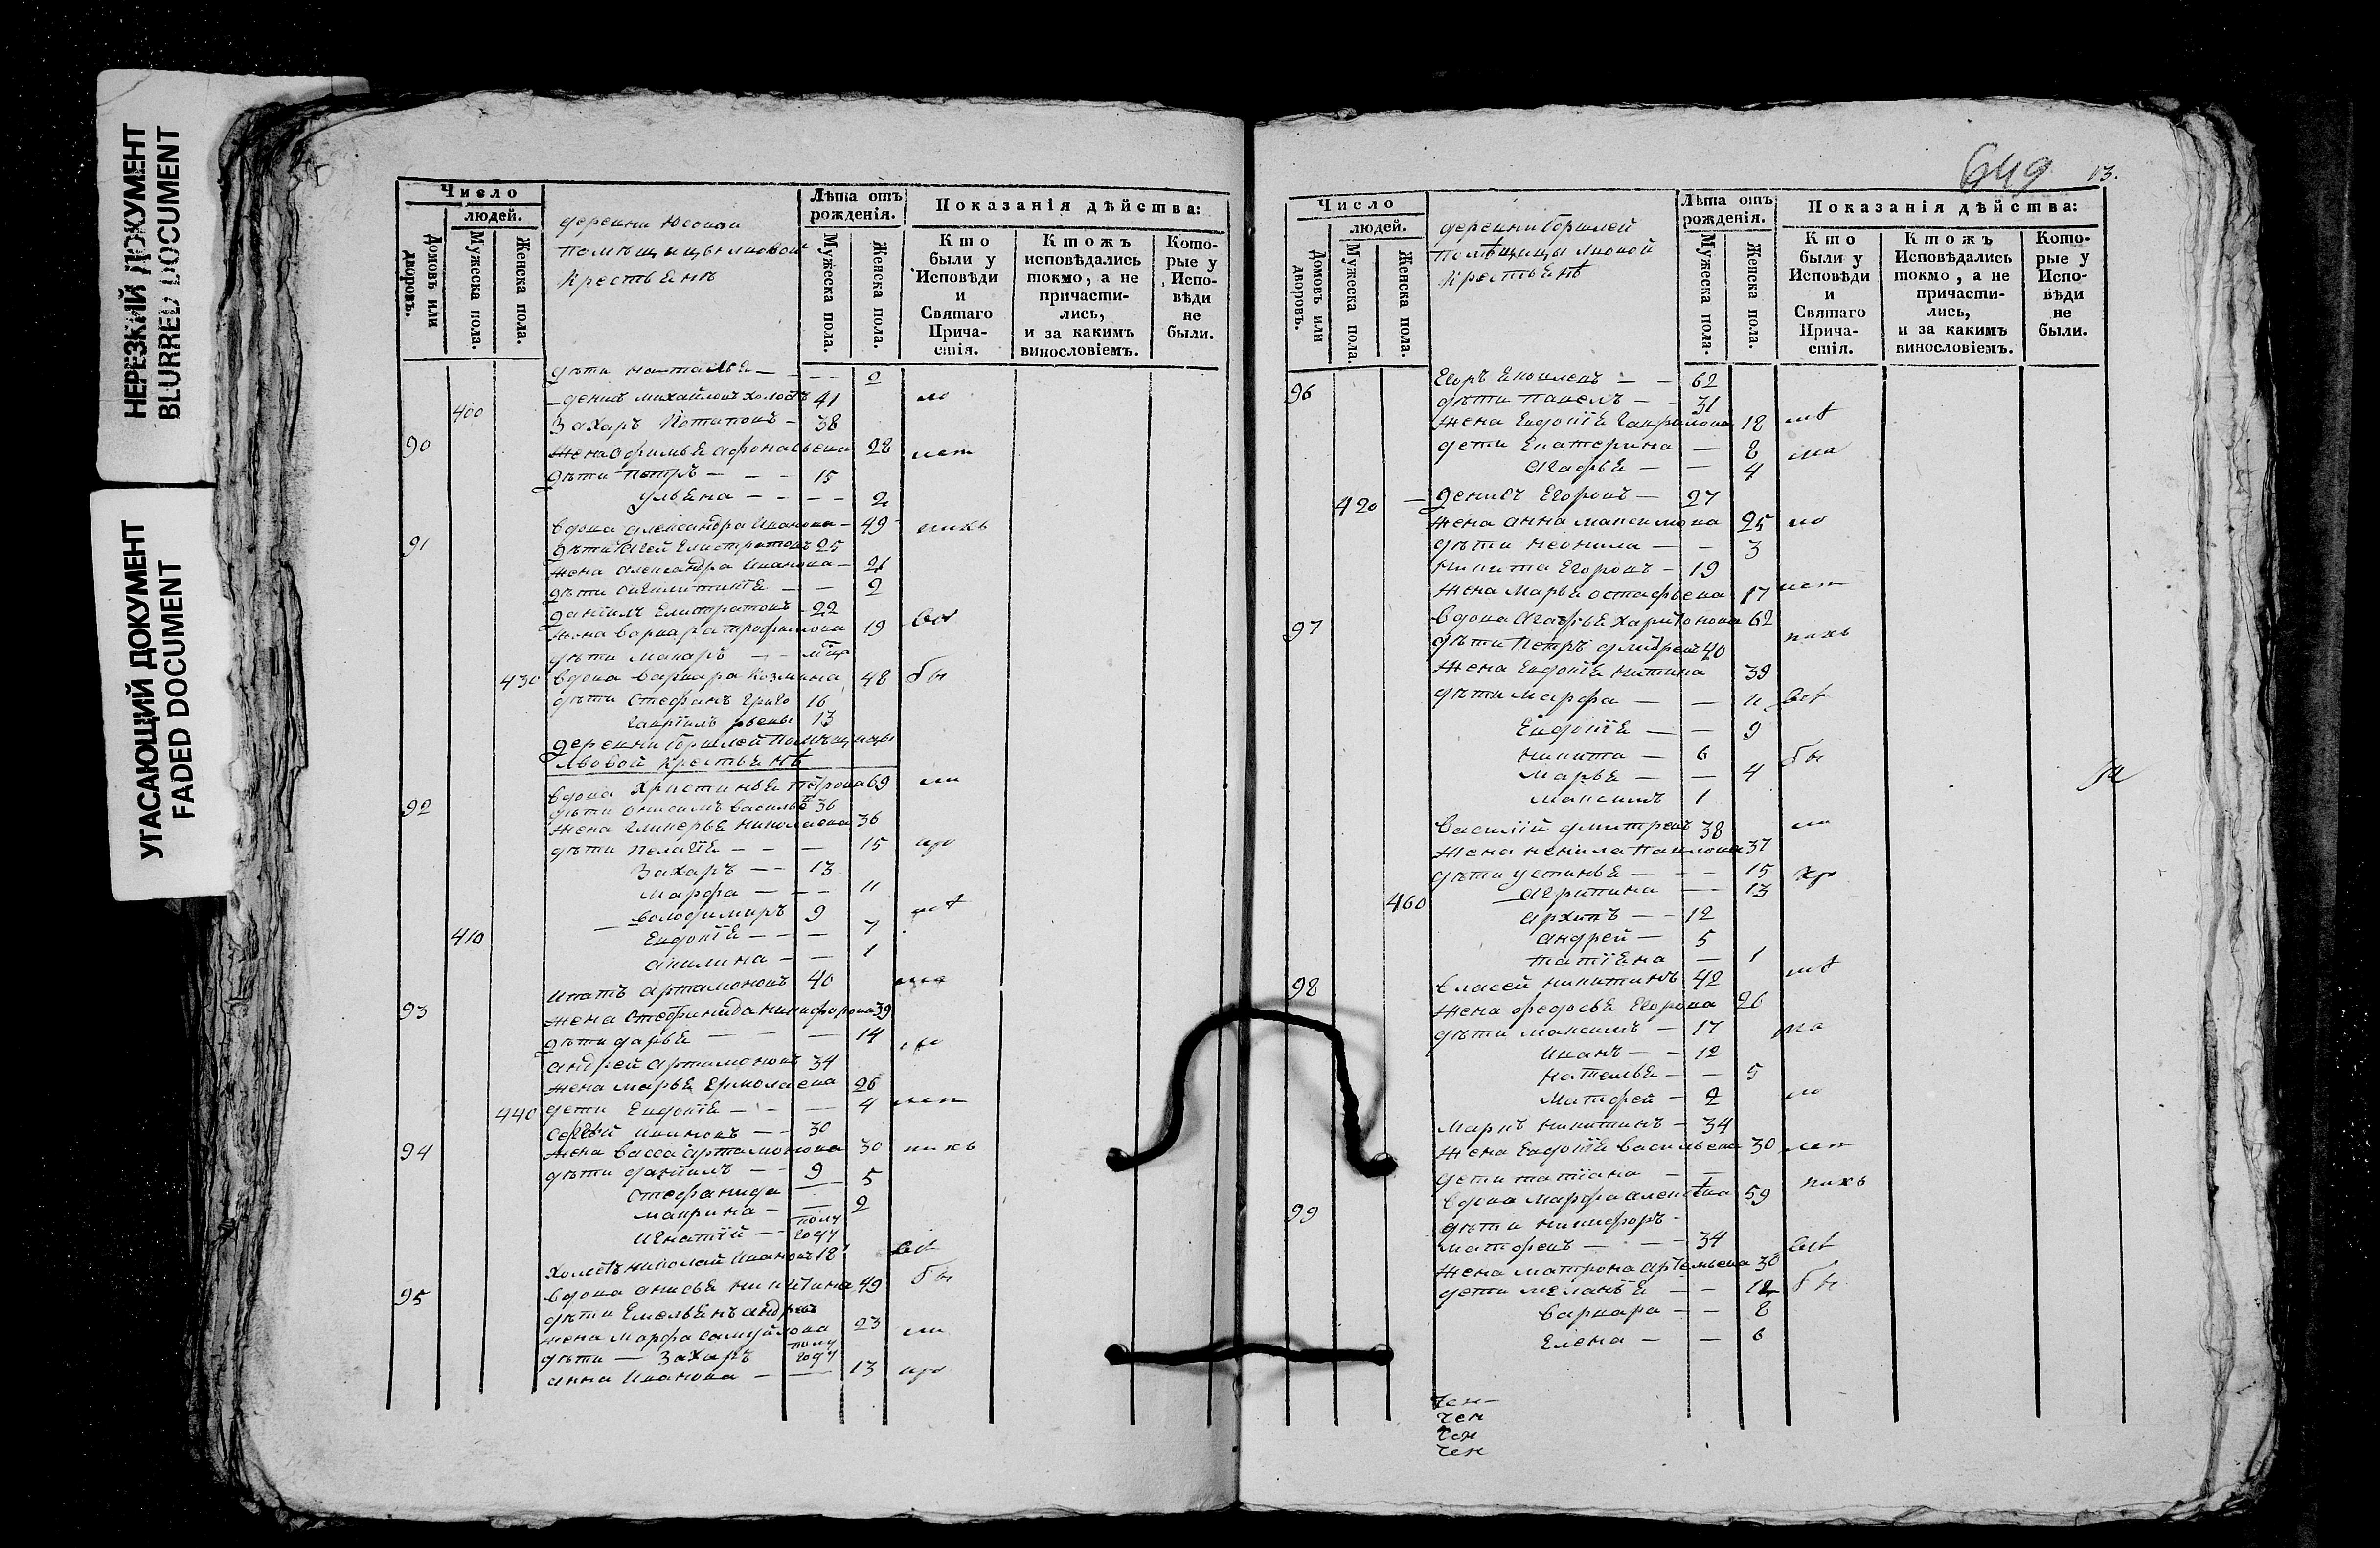 НЕРЕЗКИЙ ДОКУМЕНТ
BLURRED DOCUMENT
УГАСАЮЩИЙ ДОКУМЕНТ
FADED DOCUMENT
Число
людей.
Домовъ или дворовъ.
Мужеска пола.
Женска пола.
деревни
помѣщицы Лвовой
крестьянъ
Лѣта отъ рожденія.
Мужеска пола.
Женска пола.
Показанія дѣйства:
Кто были у Исповѣди и Святаго Прича-стія.
Ктожъ исповѣдались токмо, а не причасти-лись, и за какимъ винословіемъ.
Кото-рые у Испо-вѣди не были.
дѣти Наталья — 9
400 Денис Михайлов холостъ 41
90 Захаръ Потаповъ — 38
жена Афимья Афонасьева 28
дѣти Петръ — 15
Ульяна — 2
91 вдова Александра Иванова — 49
дѣти Агей Елистратовъ 25
жена Александра Иванова — 21
дѣти — 2
Данiилъ Елистратовъ 22
жена Варвара Трофимова 19
дѣти Макаръ —
430 вдова Варвара Козмина 48 бы
дѣти Стефанъ Григо 16
Гаврiилъ рьевы 13
деревни помѣщицы
Лвовой крестьянъ
92 вдова Христинья Петрова 69 ли
дѣти Онисимъ Василье 36
жена Гликерья Николаева 36
дѣти Пелагiя — 15
Захаръ — 13
Марфа — 11
Володимиръ 9
410 Евдокiя — 7
Акилина — 1
93 Ипатъ Артамоновъ 40
жена Стефанида Никифорова 39
дѣти Дарья — 14
Андрей Артамоновъ 34
жена Марья Ермолаева 26
440 дети Евдокiя — 4
94 Сергѣй Ивановъ — 30
жена Васса Артамонова 30 никъ
дѣти Данiилъ — 9
Стефанида — 5
Маврина — 2
Игнатiй — полу году
холостъ Николай Ивановъ 18
95 вдова Анисья Никитина 49 бы
дѣти Емельянъ Андрев
жена Марфа Самуйлова 23 ли
дѣти — Захаръ полу году
Анна Иванова — 13
649 13.
Число
людей.
Домовъ или дворовъ.
Мужеска пола.
Женска пола.
деревни
помѣщицы Лвовой
крестьянъ
Лѣта отъ рожденія.
Мужеска пола.
Женска пола.
Показанія дѣйства:
Кто были у Исповѣди и Святаго Прича-стія.
Ктожъ Исповѣдались токмо, а не причасти-лись, и за какимъ винословіемъ.
Кото-рые у Испо-вѣди не были.
96 Егоръ — 62
дѣти Павелъ — 31
жена Евдокiя Гаврилова 18
дети Екатерина — 8
Агафья — 4
420 — Денисъ Егоровъ — 27
жена Анна Максимова 25
дѣти Неонила — 3
Никита Егоровъ — 19
жена Марья Остафьева 17
97 вдова Агафья Харитонова 62
дѣти Петръ Дмитревъ 40
жена Евдокiя Никитина 39
дѣти Марфа — 11
Евдокiя — 9
Никита — 6 бы
Марья — 4
Максимъ 1
Василiй Дмитревъ 38 ли
жена Ненила Павлова 37
дѣти Устинья — 15
460 Агрипина — 13
Архипъ — 12
Андрей — 5
Татiяна — 1
98 Власей Никитинъ 42
жена Федосья Егорова 26
дѣти Максимъ — 17
Иванъ — 12
Наталья — 5
Матфей — 2
Маркъ Никитинъ — 34
жена Евдокiя Васильева 30
дети Татiана — 1
99 вдова Марфа Алексѣва 59
дѣти Никифоръ
Матфевъ — 34
жена Матрона Артемьева 30
дети Меланья — 12 бы
Варвара — 8
Елена — 6
чен
чен
чен
чен